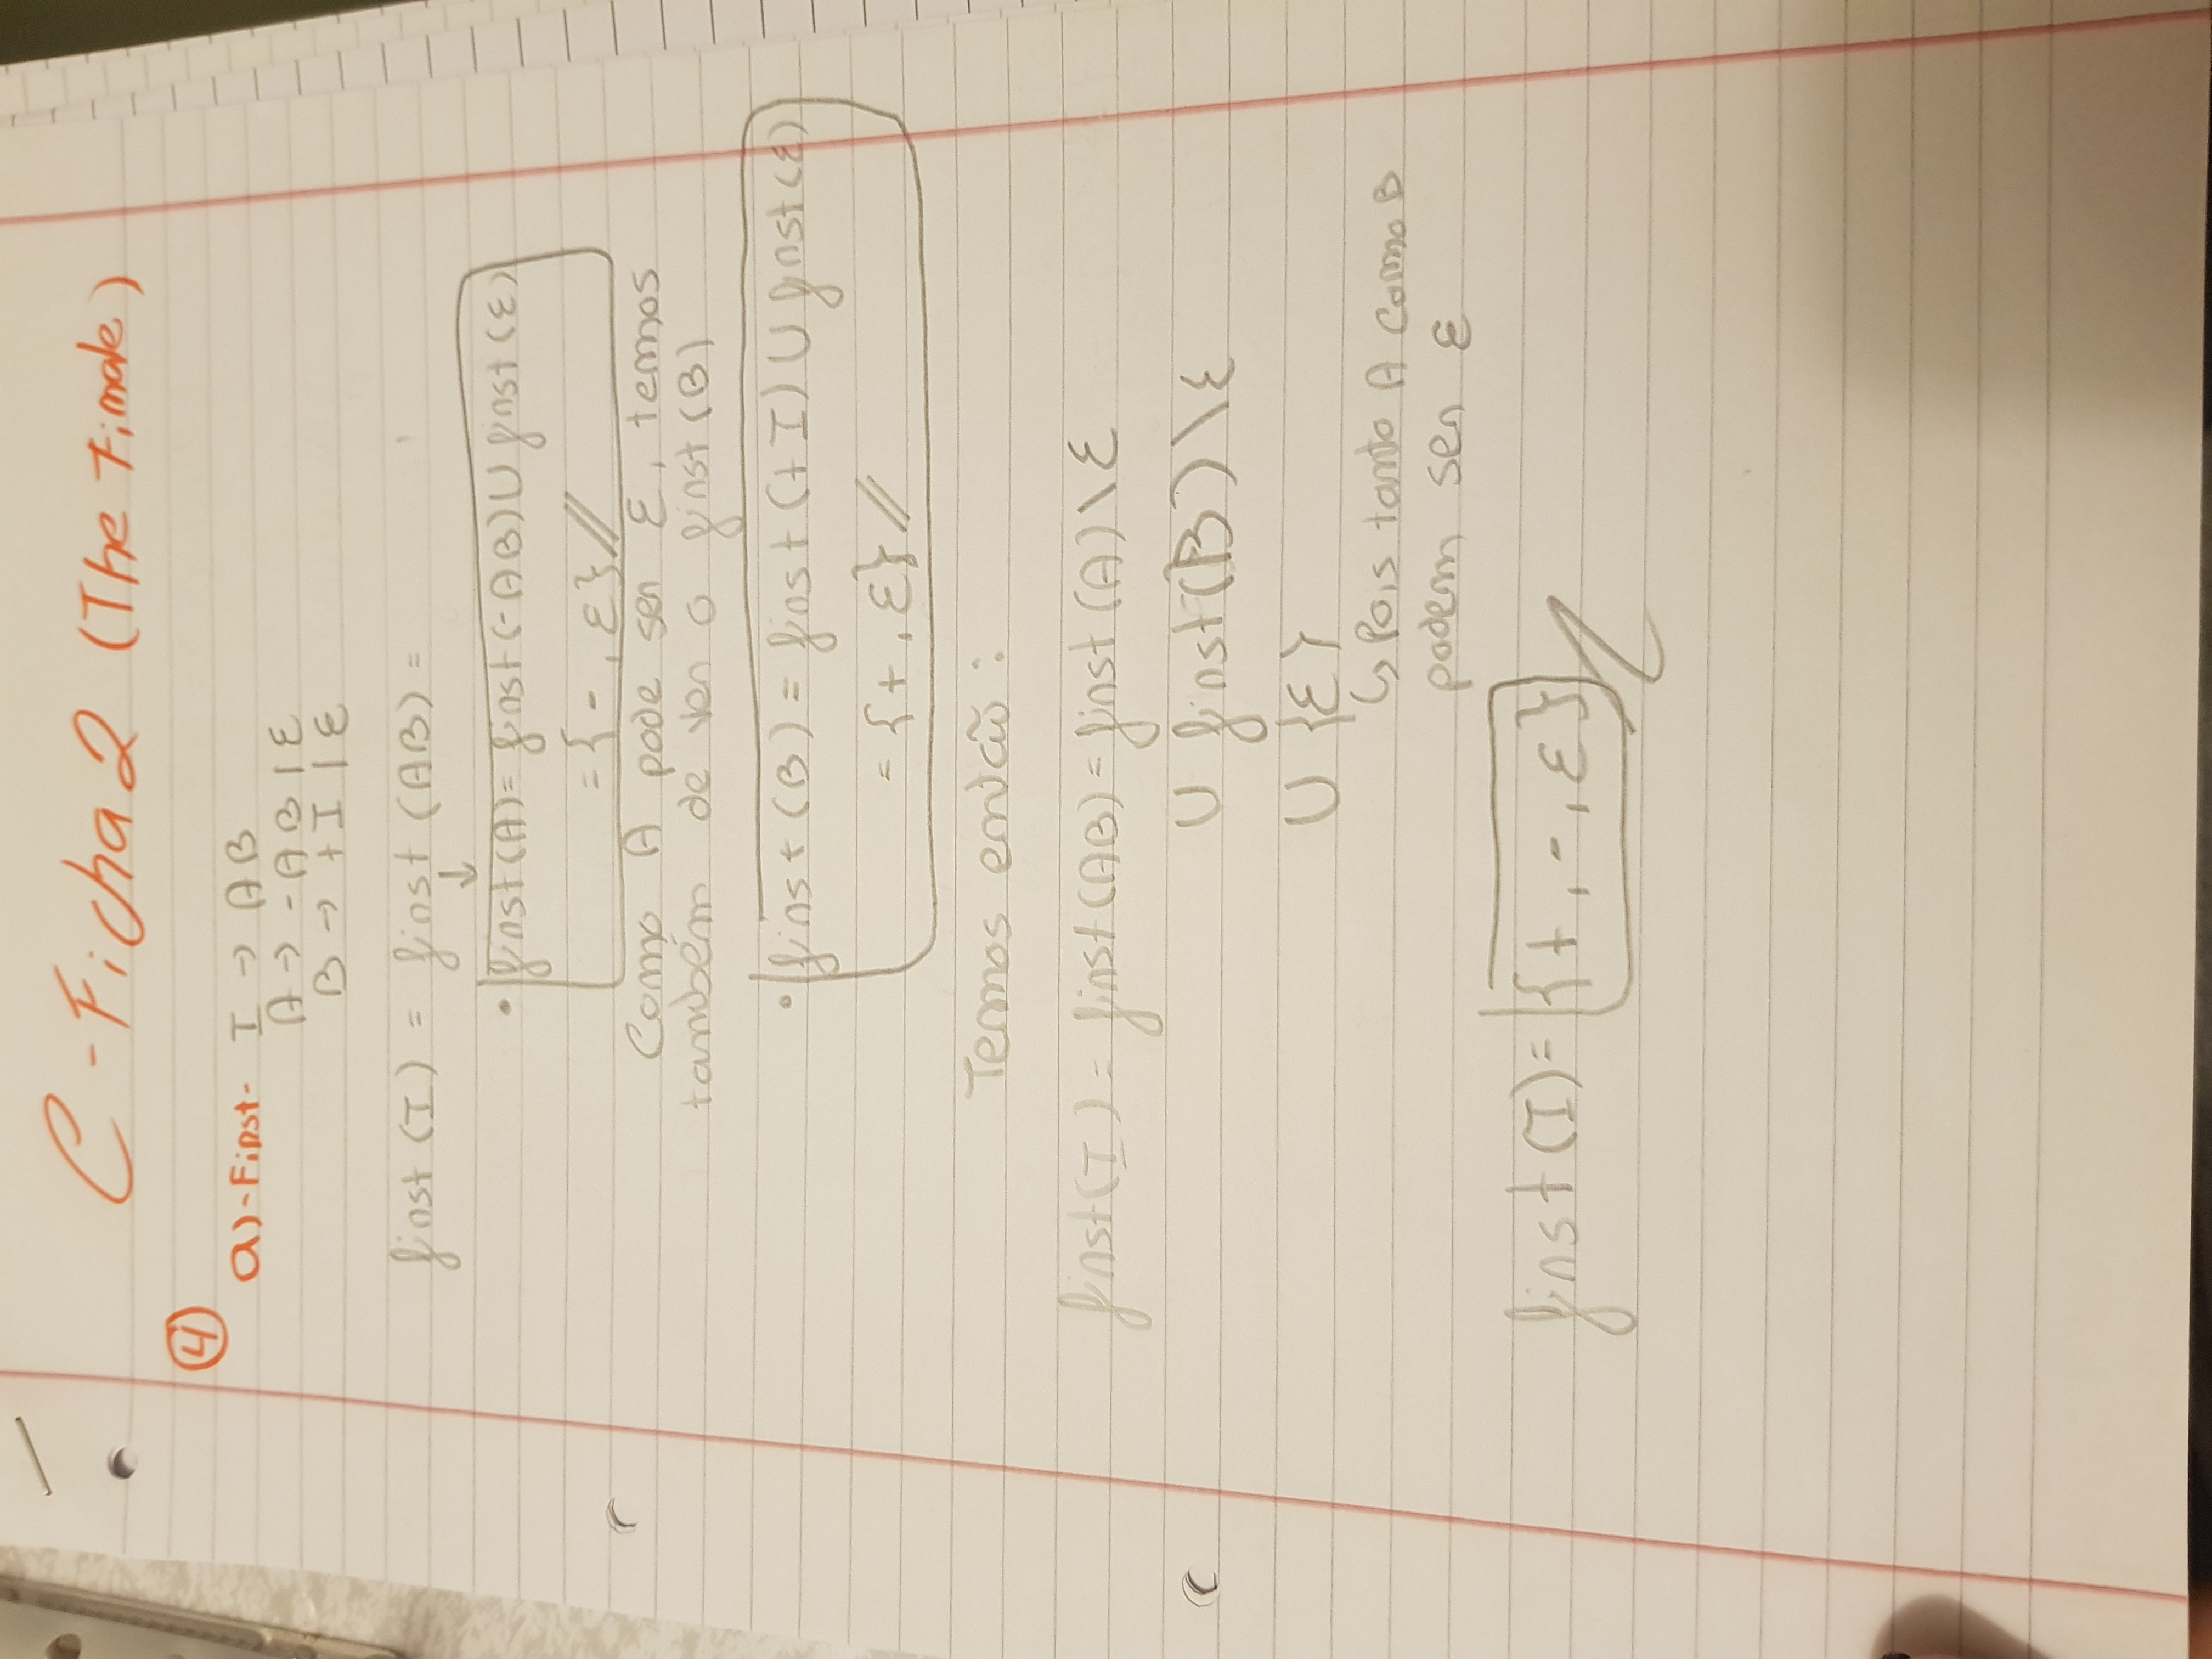 C - Ficha 2 (The Finale)
4
a) - First - I → AB
A → - AB | ε
B → + I | ε
first (I) = first (AB) =
↓
• first (A) = first (-AB) ∪ first (ε)
= {- , ε} //
Como A pode ser ε, temos
também de ver o first (B)
• first (B) = first (+ I) ∪ first (ε)
= {+ , ε} //
Temos então :
first (I) = first (AB) = first (A) \ ε
∪ first (B) \ ε
∪ {ε}
↳ Pois tanto A como B
podem ser ε
first (I) = {+ , - , ε} //